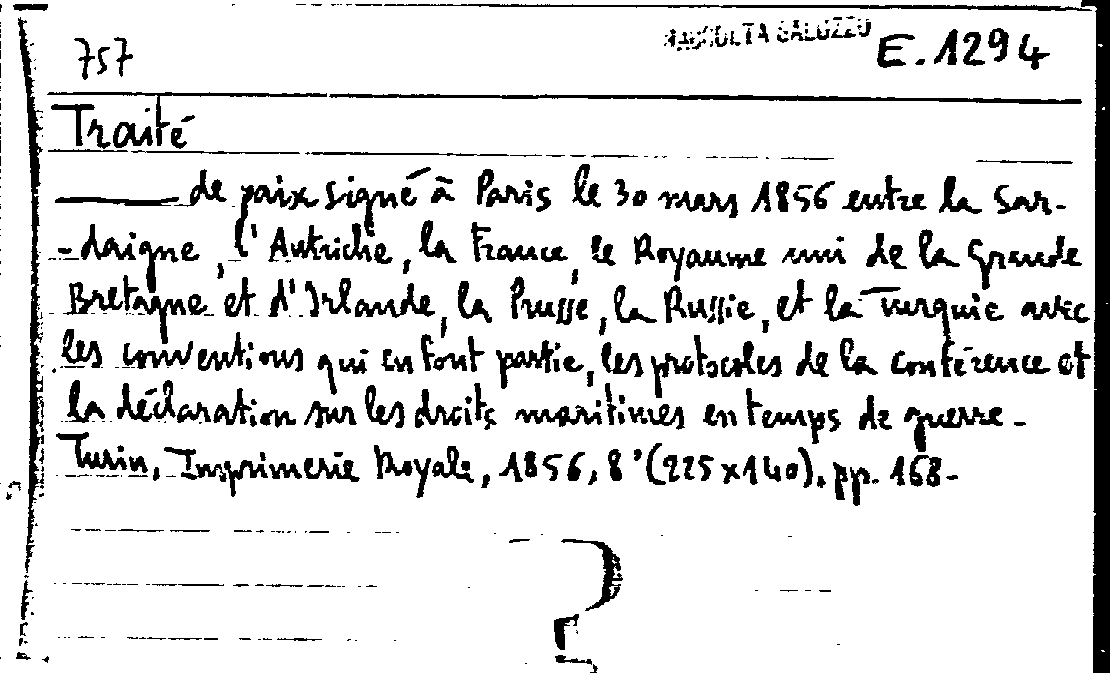 757
RACCOLTA SALUZZO E.1294
Traité
de paix signé à Paris le 30 mars 1856 entre la Sar-
-daigne, l'Autriche, la France, le Royaume uni de la Grande
Bretagne et d'Irlande, la Prusse, la Russie, et la Turquie avec
les conventions qui en font partie, les protocoles de la conférence et
la déclaration sur les droits maritimes en temps de guerre -
Turin, Imprimerie Royale, 1856, 8° (225x140), pp. 168-